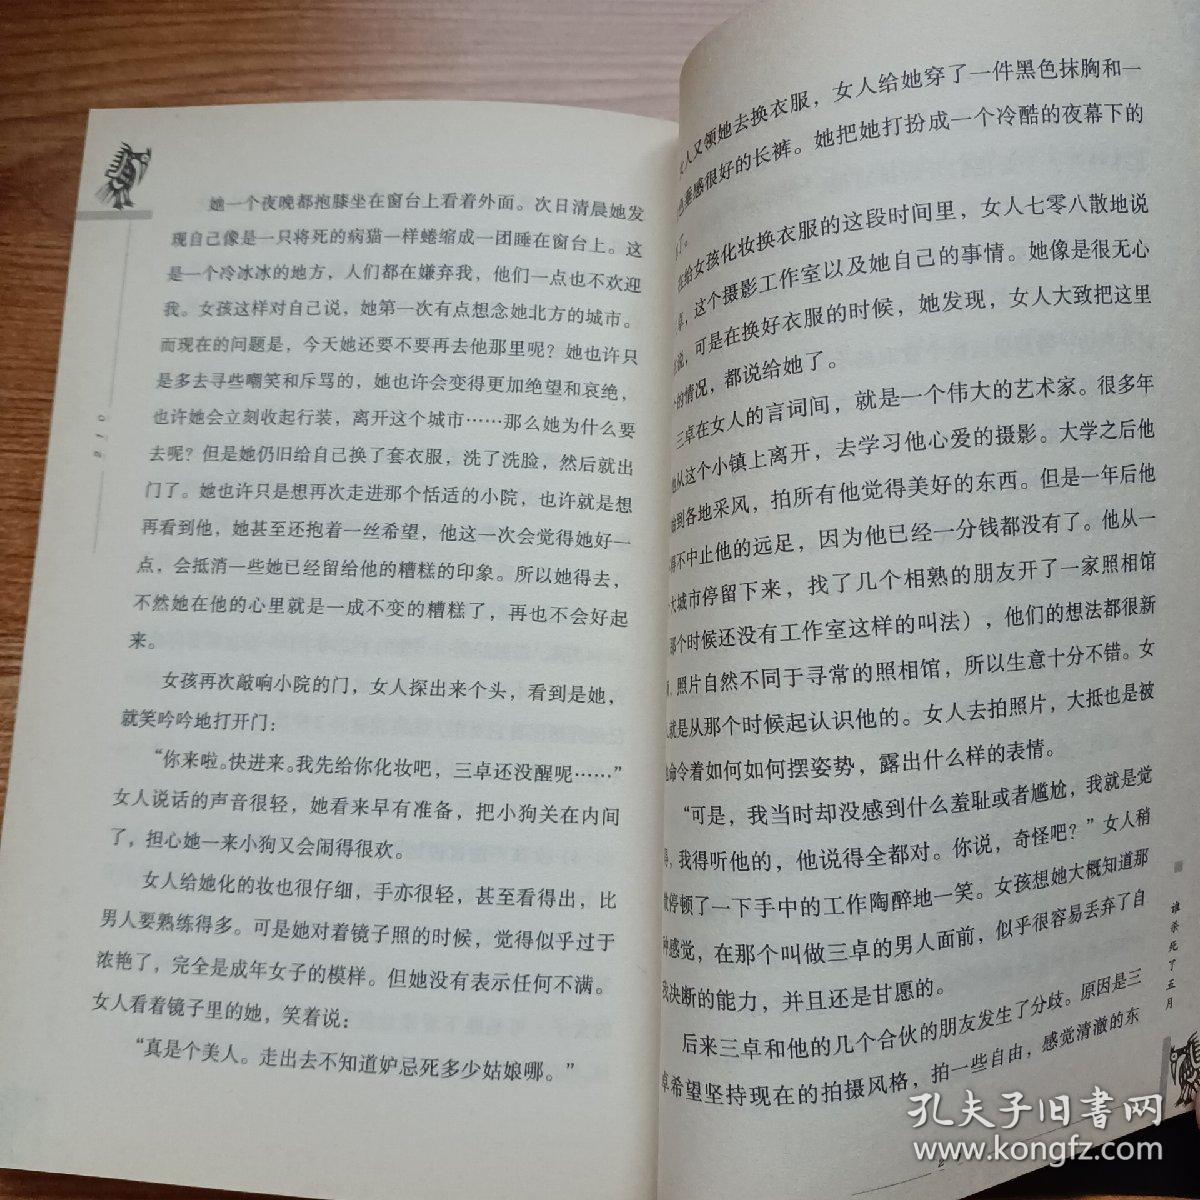 她一个夜晚都抱膝坐在窗台上看着外面。次日清晨她发
现自己像是一只将死的病猫一样蜷缩成一团睡在窗台上。这
是一个冷冰冰的地方，人们都在嫌弃我，他们一点也不欢迎
我。女孩这样对自己说，她第一次有点想念她北方的城市。
而现在的问题是，今天她还要不要再去他那里呢？她也许只
是多去寻些嘲笑和斥骂的，她也许会变得更加绝望和哀绝，
也许她会立刻收起行装，离开这个城市……那么她为什么要
去呢？但是她仍旧给自己换了套衣服，洗了洗脸，然后就出
门了。她也许只是想再次走进那个恬适的小院，也许就是想
再看到他，她甚至还抱着一丝希望，他这一次会觉得她好一
点，会抵消一些她已经留给他的糟糕的印象。所以她得去，
不然她在他的心里就是一成不变的糟糕了，再也不会好起
来。
女孩再次敲响小院的门，女人探出来个头，看到是她，
就笑吟吟地打开门：
“你来啦。快进来。我先给你化妆吧，三卓还没醒呢……”
女人说话的声音很轻，她看来早有准备，把小狗关在内间
了，担心她一来小狗又会闹得很欢。
女人给她化的妆也很仔细，手亦很轻，甚至看得出，比
男人要熟练得多。可是她对着镜子照的时候，觉得似乎过于
浓艳了，完全是成年女子的模样。但她没有表示任何不满。
女人看着镜子里的她，笑着说：
“真是个美人。走出去不知道妒忌死多少姑娘哪。”
人又领她去换衣服，女人给她穿了一件黑色抹胸和一
色垂感很好的长裤。她把她打扮成一个冷酷的夜幕下的
了。
在给女孩化妆换衣服的这段时间里，女人七零八散地说
卓，这个摄影工作室以及她自己的事情。她像是很无心
说，可是在换好衣服的时候，她发现，女人大致把这里
的情况，都说给她了。
三卓在女人的言词间，就是一个伟大的艺术家。很多年
他从这个小镇上离开，去学习他心爱的摄影。大学之后他
始到各地采风，拍所有他觉得美好的东西。但是一年后他
得不中止他的远足，因为他已经一分钱都没有了。他从一
大城市停留下来，找了几个相熟的朋友开了一家照相馆
那个时候还没有工作室这样的叫法），他们的想法都很新
，照片自然不同于寻常的照相馆，所以生意十分不错。女
就是从那个时候起认识他的。女人去拍照片，大抵也是被
他命令着如何如何摆姿势，露出什么样的表情。
“可是，我当时却没感到什么羞耻或者尴尬，我就是觉
，我得听他的，他说得全都对。你说，奇怪吧？”女人稍
微停顿了一下手中的工作陶醉地一笑。女孩想她大概知道那
种感觉，在那个叫做三卓的男人面前，似乎很容易丢弃了自
我决断的能力，并且还是甘愿的。
后来三卓和他的几个合伙的朋友发生了分歧。原因是三
卓希望坚持现在的拍摄风格，拍一些自由，感觉清澈的东
谁杀死了五月
孔夫子旧书网
www.kongfz.com